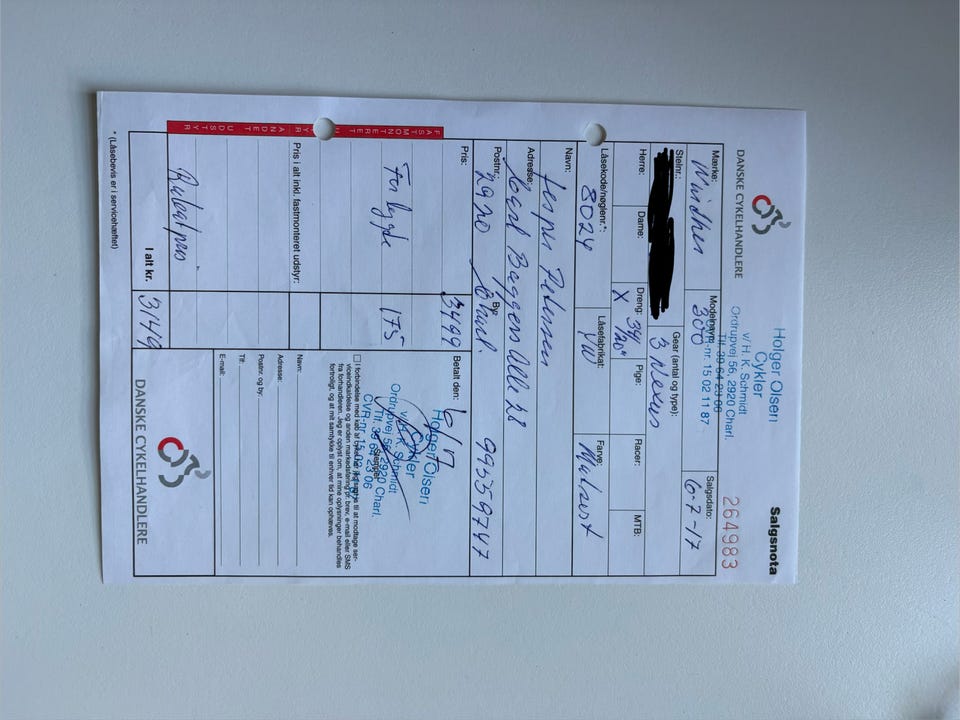 DANSKE CYKELHANDLERE
Holger Olsen
Cykler
v/ H. K. Schmidt
Ordrupvej 56, 2920 Charl.
Tlf. 39 64 23 06
CVR-nr. 15 02 11 87
Salgsnota
264983
Mærke:
Modelnavn:
Salgsdato:
300
6-7-17
Stelnr.:
Gear (antal og type):
3 Nexus
Herre:
Dame:
Dreng:
Pige:
Racer:
MTB:
X
20"
Låsekode/nøglenr.*:
Låsefabrikat:
Farve:
8024
VW
Navn:
Jesper Petersen
Adresse:
Carl Baggers Allé 28
Postnr.:
By:
2920 Charl.
99359747
Pris:
3499
Betalt den:
6/17
FASTMONTERET UDSTYR
Forlygte
175
Holger Olsen
Cykler
v/ H. K. Schmidt
Ordrupvej 56, 2920 Charl.
Tlf. 39 64 23 06
CVR-nr. 15 02 11 87
Pris i alt inkl. fastmonteret udstyr:
I forbindelse med køb af cykel, jeg samtykke til at modtage ser-
viceindkaldelse og anden markedsføring pr. brev, e-mail eller SMS
fra forhandleren. Jeg er oplyst om, at mine oplysninger behandles
fortroligt, og at mit samtykke til enhver tid kan ophæves.
Navn:
Adresse:
Postnr. og by:
Tlf:
E-mail:
ANDET UDSTYR
Rabatpris
I alt kr.
3149
DANSKE CYKELHANDLERE
* (Låsebevis er i servicehæftet)